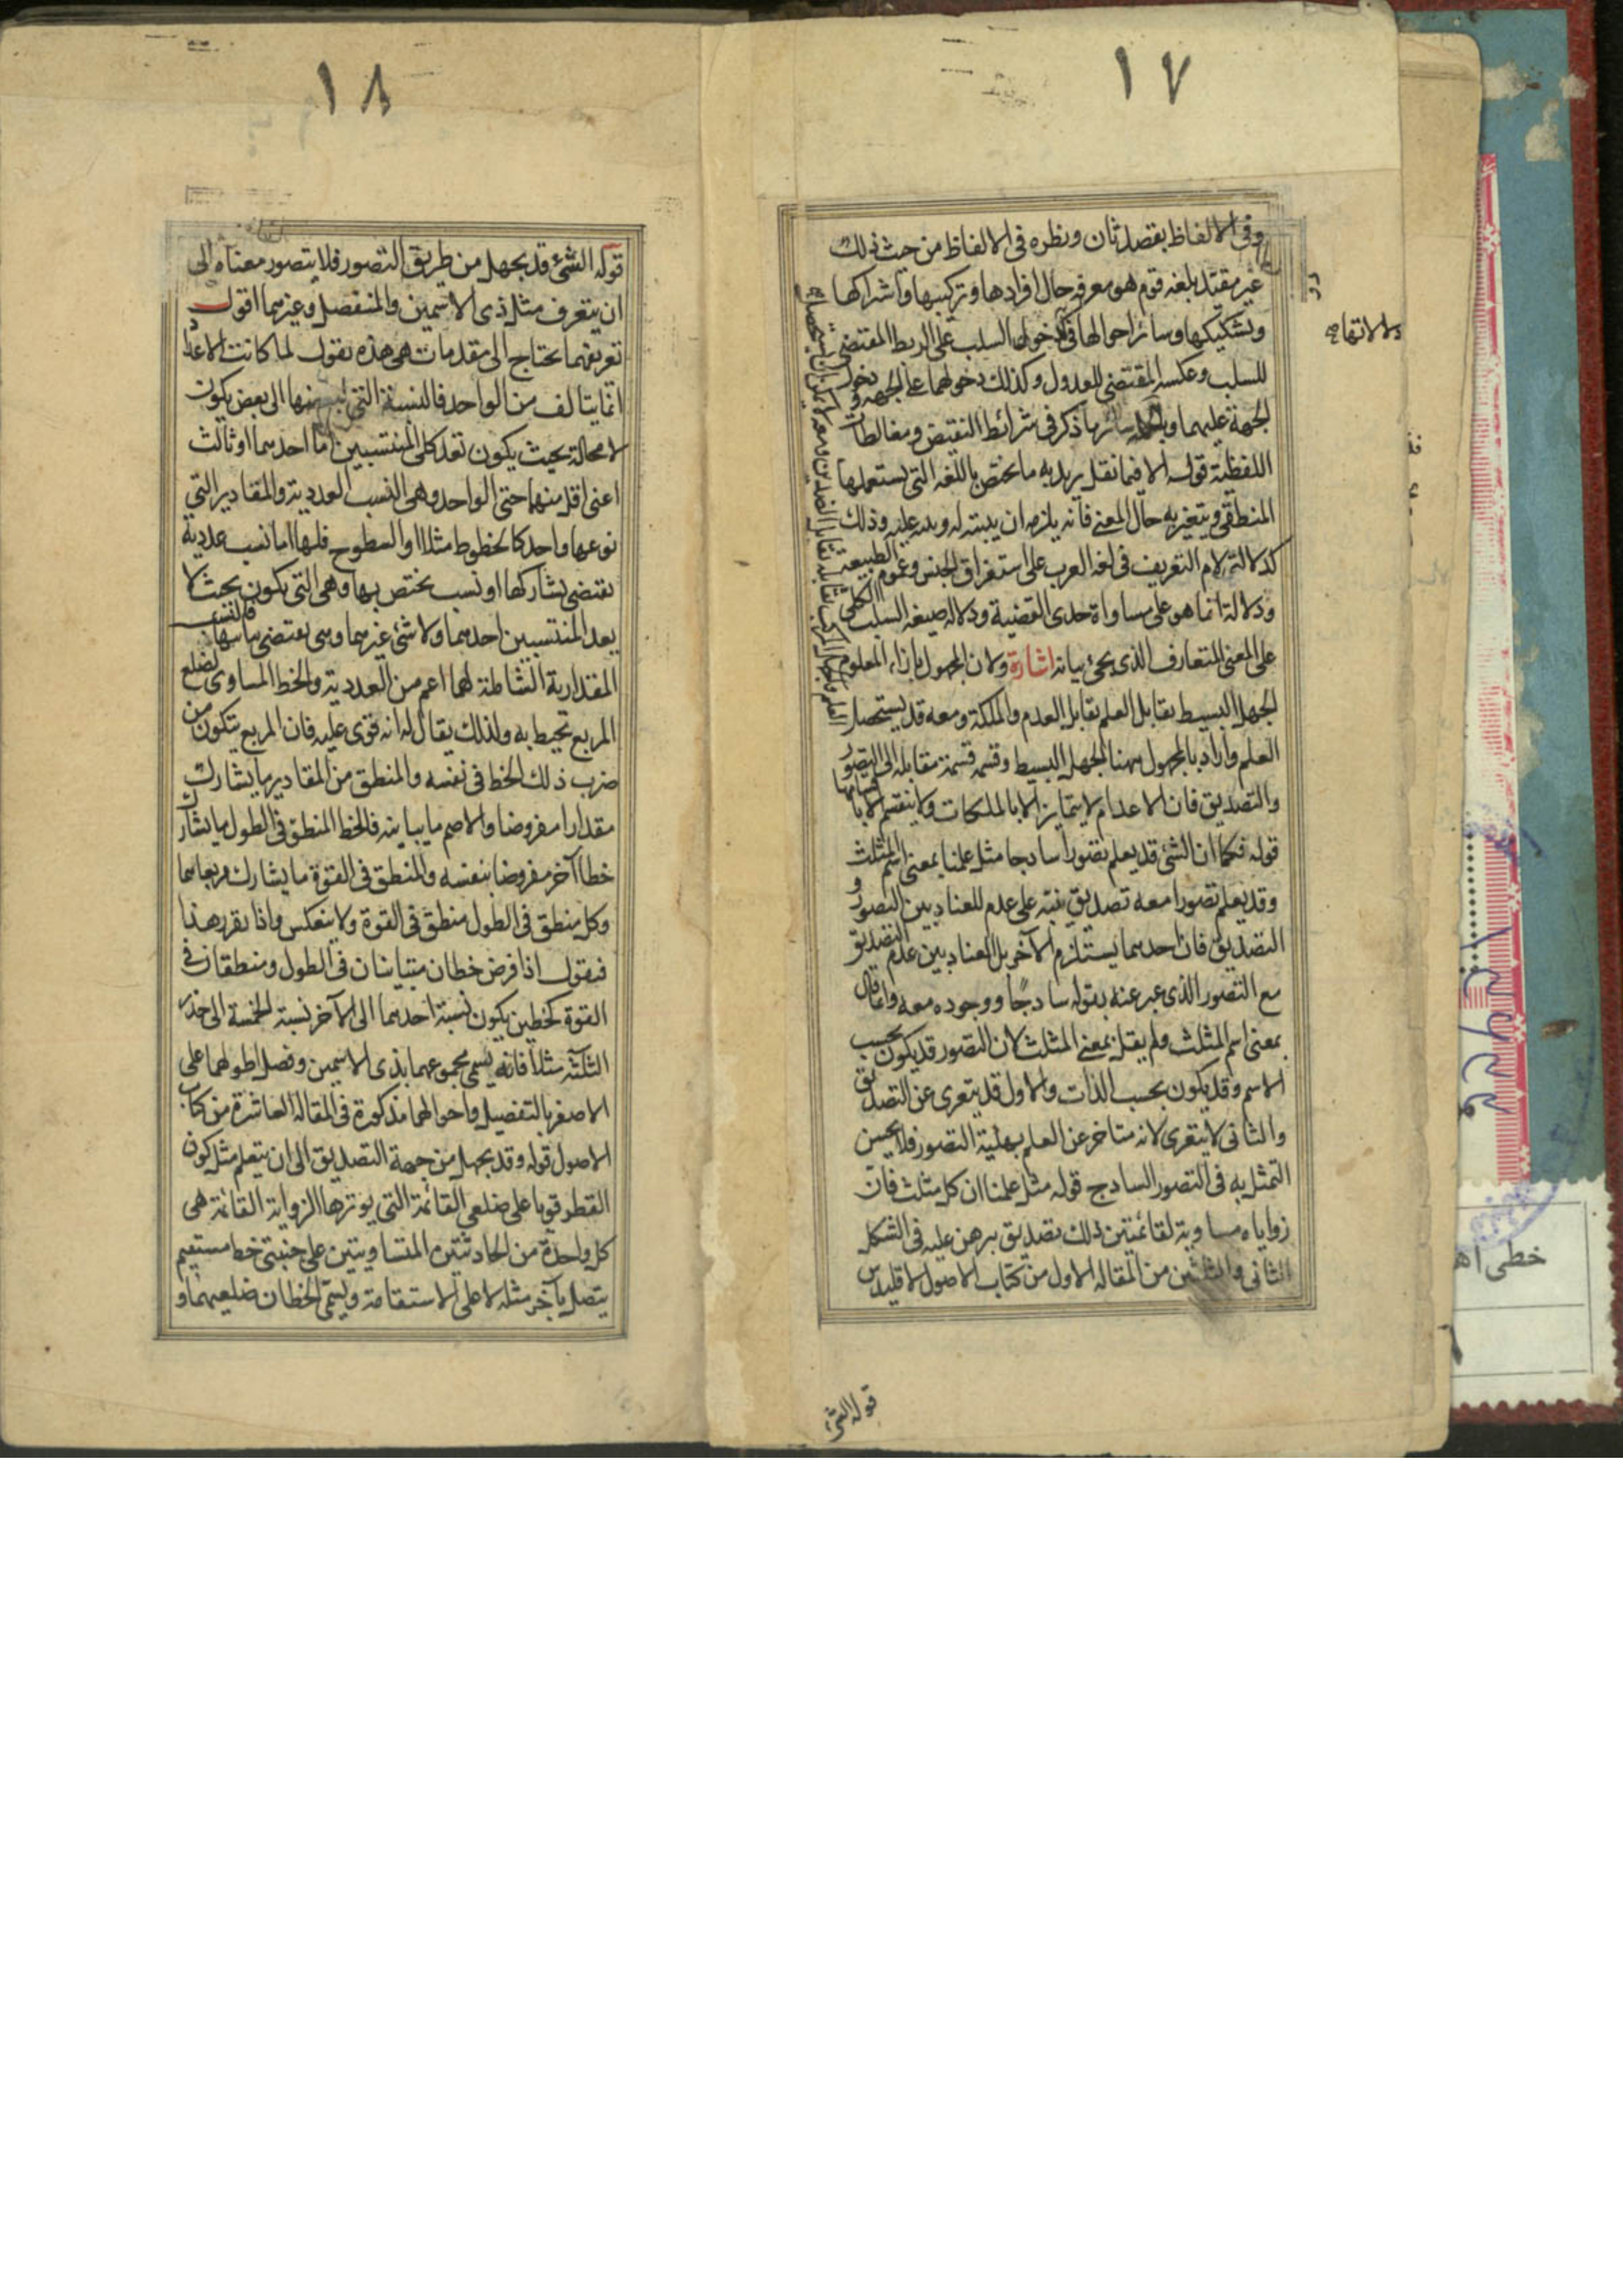 ١٧
وفى الالفاظ بقصد ثان ونظره فى الالفاظ من حيث ذلك
غير مقيد بلغة قوم هو معرفة حال افرادها وتركيبها واشتراكها
وتشكيكها وسائر احوالها فى دخول السلب على الربط المقتضى
للسلب وعكسه المقتضى للعدول وكذلك دخولهما على الجهة ودخول
الجهة عليهما وبالجملة سائر ما ذكر فى شرائط النقيض ومغالطات
اللفظية قوله الا فيما نقل يريد به ما يختص باللغة التى يستعملها
المنطقى ويتغير به حال المعنى فانه يلزمه ان ينبه له وينبه عليه وذلك
كدلالة لام التعريف فى لغة العرب على استغراق الجنس وعموم الطبيعة
ودلالة انما هو على مساواة حدى القضية ودلالة صيغة السلب الكلى
على المعنى المتعارف الذى يجئ بيانه اشارة ولان المجهول بازاء المعلوم
الجهل البسيط يقابل العلم تقابل العدم والملكة ومعه قد يستحصل
العلم واراد بالمجهول ههنا الجهل البسيط وقسمه قسمة مقابله الى التصور
والتصديق فان الاعدام لا يتمايز الا بالملكات ولا ينقسم الا باقسامها
قوله فكما ان الشئ قد يعلم تصورا ساذجا مثل علمنا بمعنى اسم المثلث
وقد يعلم تصورا معه تصديق نبه على عدم العناد بين التصور و
التصديق فان احدهما يستلزم الآخر بل العناد بين عدم التصديق
مع التصور الذى عبر عنه بقوله ساذجا ووجوده معه وانما قال
بمعنى اسم المثلث ولم يقل بمعنى المثلث لان التصور قد يكون بحسب
الاسم وقد يكون بحسب الذات والاول قد يتعرى عن التصديق
والثانى لا يتعرى لانه متاخر عن العلم بهلية التصور فلا يحسن
التمثل به فى التصور الساذج قوله مثل علمنا ان كل مثلث فان
زواياه مساوية لقائمتين ذلك تصديق برهن عليه فى الشكل
الثانى والثلثين من المقالة الاولى من كتاب الاصول لاقليدس
قوله الشئ
١٨
قوله الشئ قد يجهل من طريق التصور فلا يتصور معناه الى
ان يتعرف مثل ذى الاسمين والمنفصل وغيرهما اقول
تعريفهما يحتاج الى مقدمات هى هذه نقول لما كانت الاعداد
انما يتالف من الواحد فالنسبة التى لبعضها الى بعض يكون
لا محالة بحيث يكون تعد كلى المنتسبين اما احدهما او ثالث
اعنى اقل منهما حتى الواحد وهى النسب العددية والمقادير التى
نوعها واحد كالخطوط مثلا او السطوح فلها اما نسب عددية
يقتضى تشاركها او نسب يختص بها وهى التى يكون بحيث لا
يعد المنتسبين احدهما ولا شئ غيرهما وهى يقتضى تباينها فالنسب
المقدارية الشاملة لهما اعم من العددية والخط المساوى لضلع
المربع تحيط به ولذلك يقال له انه قوى عليه فان المربع يتكون من
ضرب ذلك الخط فى نفسه والمنطق من المقادير ما يشارك
مقدارا مفروضا والاصم ما يباينه فالخط المنطق فى الطول ما يشارك
خطا آخر مفروضا بنفسه والمنطق فى القوة ما يشارك مربعاهما
وكل منطق فى الطول منطق فى القوة ولا ينعكس واذا تقرر هذا
فنقول اذا فرض خطان متباينان فى الطول ومنطقان فى
القوة كخطين يكون نسبة احدهما الى الآخر نسبة الخمسة الى جذر
الثلثه مثلا فانه يسمى مجموعهما بذى الاسمين وفضل اطولهما على
الاصغر بالتفصيل واحوالهما مذكورة فى المقالة العاشرة من كتاب
الاصول قوله وقد يجهل من جهة التصديق الى ان يتعلم مثل كون
القطر قويا على ضلعى القائمة التى يوترها الزواية القائمة هى
كل واحدة من الحادثتين المتساويتين على جنبتى خط مستقيم
يتصل بآخر مثله لا على الاستقامة ويسمى الخطان ضلعيهما و
خطى